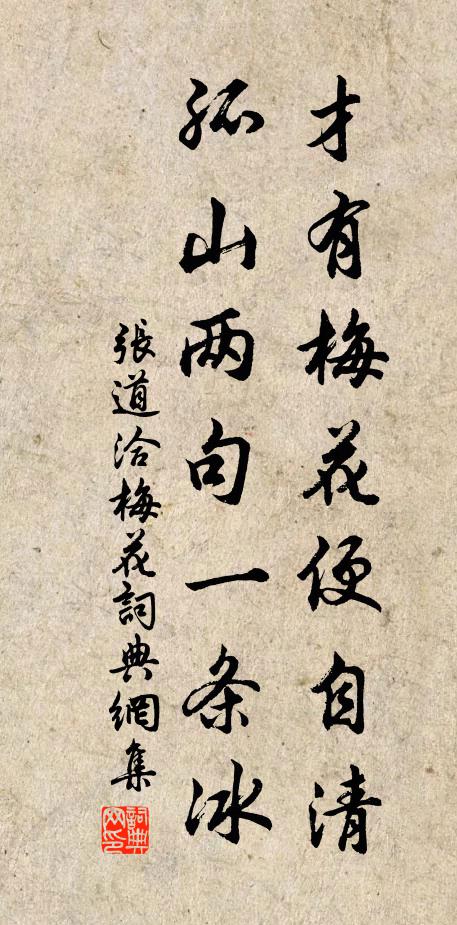 才有梅花便自清
孤山两句一条冰
張道洽梅花詞典網集
詞典网印